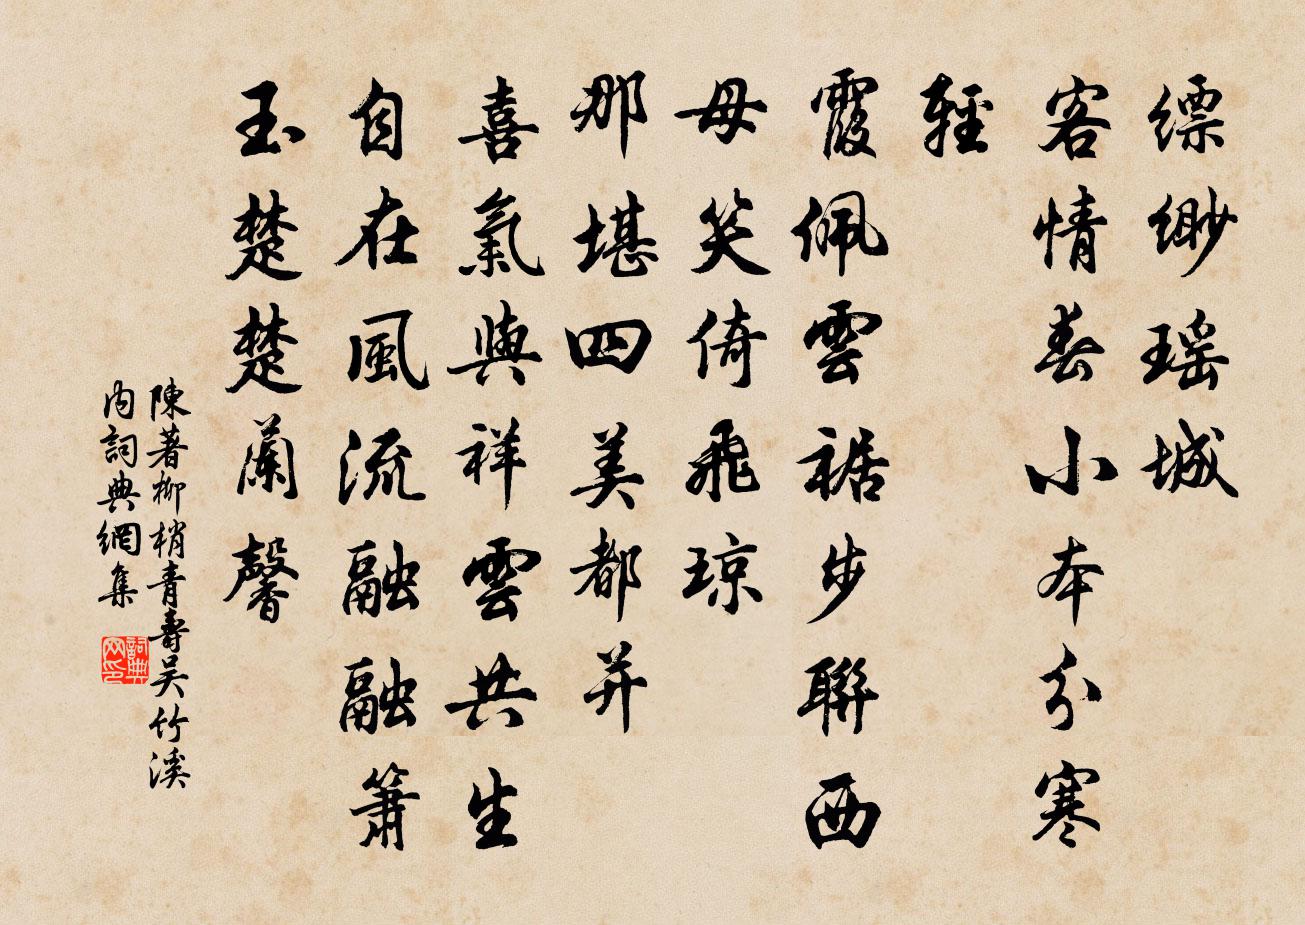 縹緲瑶城
客情春小本分寒
輕
霞佩雲裾步聯西
母笑倚飛琼
那堪四美都并
喜氣與祥雲共生
自在風流融融簫
玉楚楚蘭馨
陳著柳梢青壽吴竹溪
内詞典網集
詞典网印